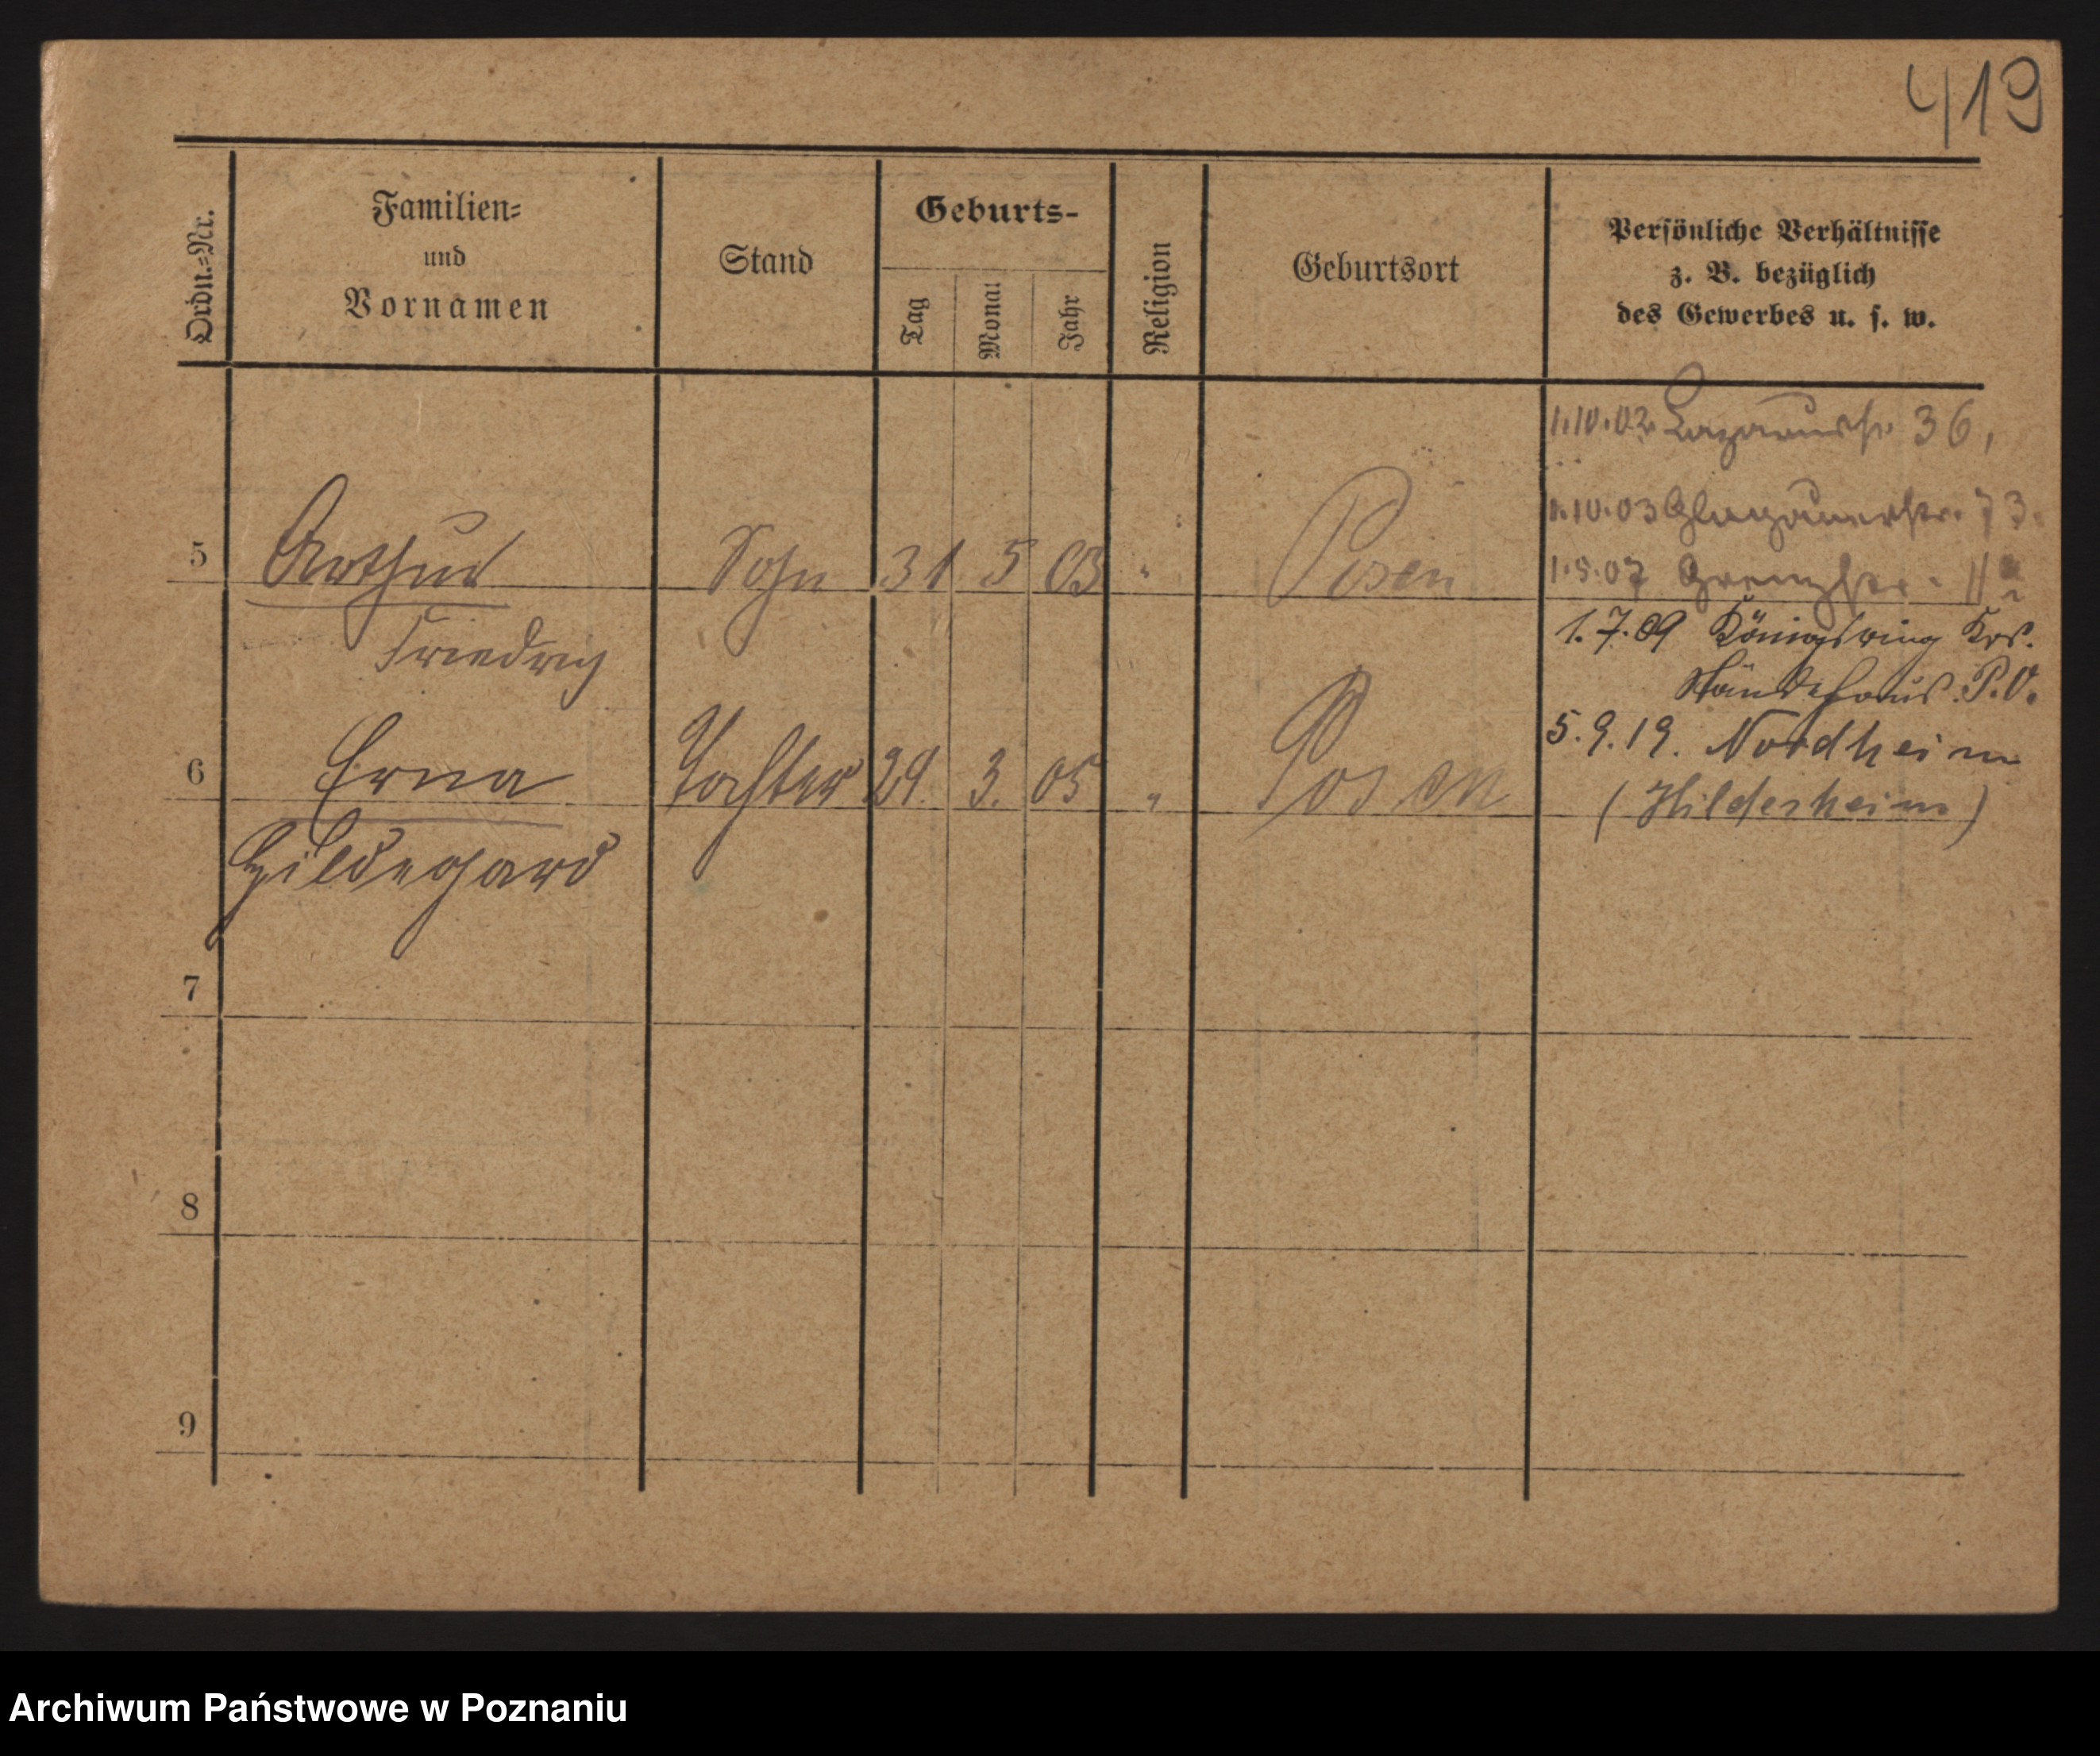 419
Ordn.=Nr.
Familien=
und
Vornamen
Stand
Geburts-
Tag
Monat
Jahr
Religion
Geburtsort
Persönliche Verhältnisse
z. B. bezüglich
des Gewerbes u. s. w.
1.10.02 Lazarusstr. 36,
1.10.03 Glogauerstr. 73.
5 Arthur Sohn 31 5 03 " Posen
1.5.07 Grenzstr.
Friedrich
1.7.09 Königsring Krs.
Ständehaus P.O.
5.9.19. Nordheim
6 Erna Tochter 29. 3. 05 " Posen
(Hildesheim)
Hildegard
7
8
9
Archiwum Państwowe w Poznaniu